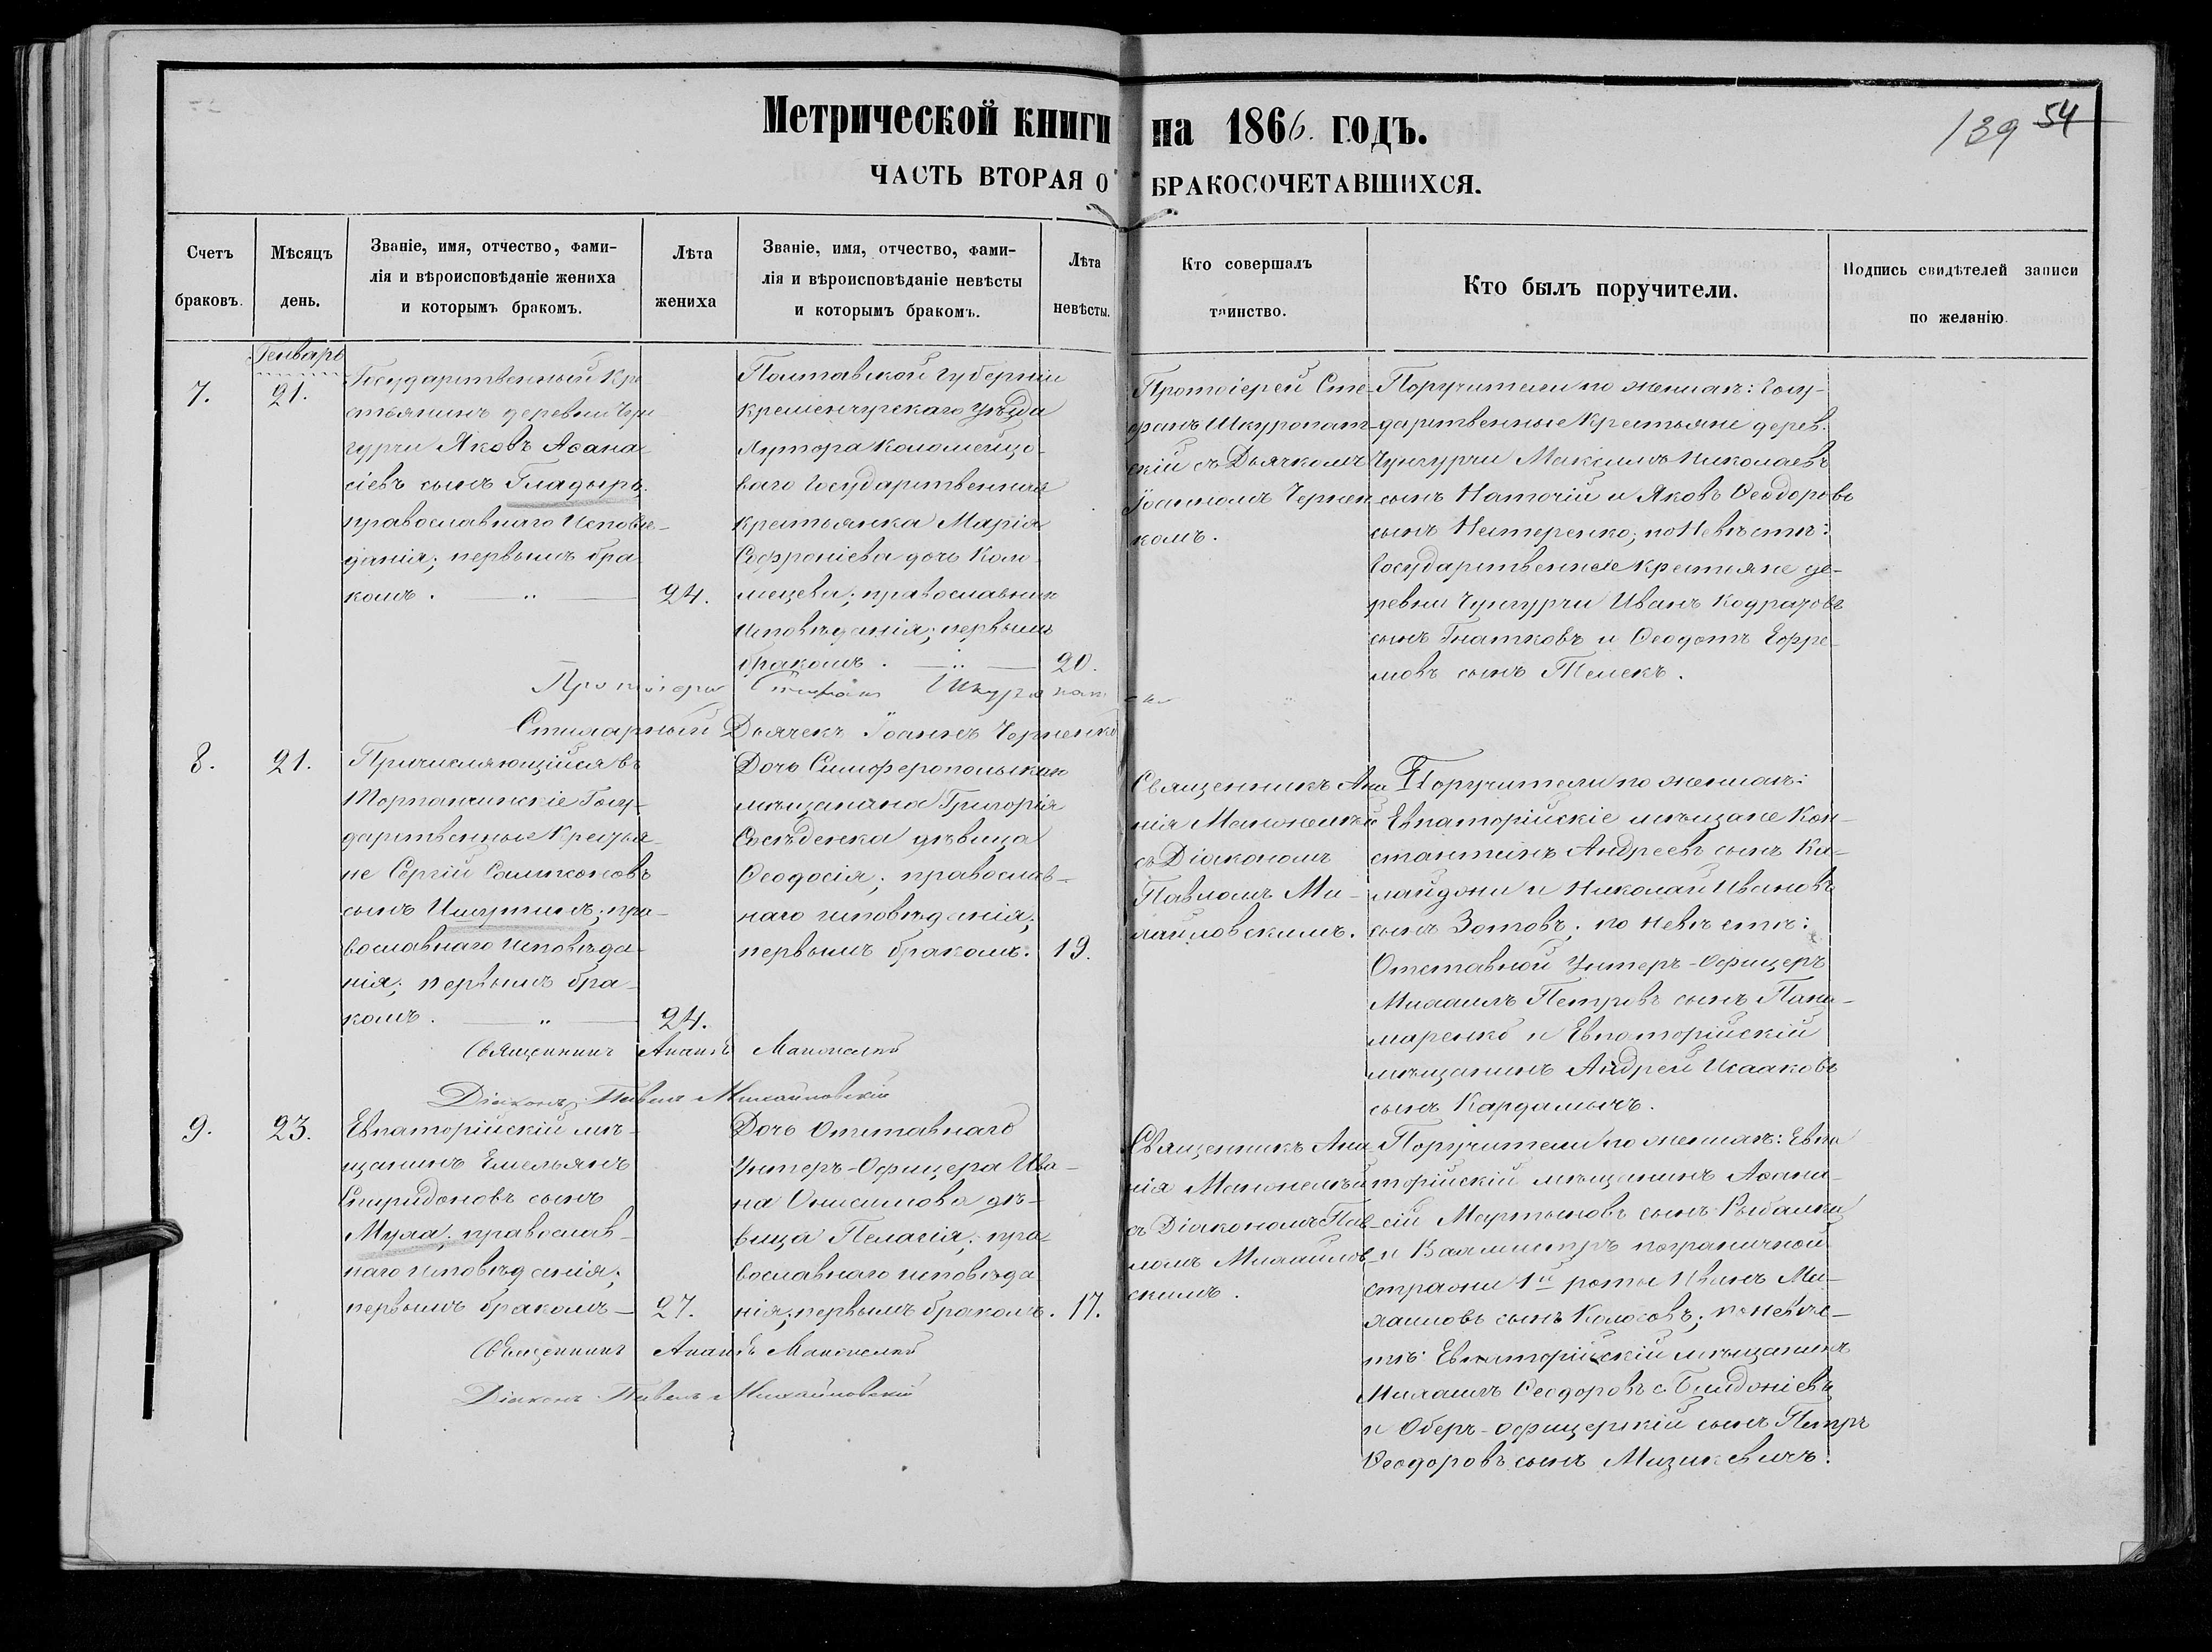 Метрической книги на 1866. годъ.
139 54
ЧАСТЬ ВТОРАЯ О БРАКОСОЧЕТАВШИХСЯ.
Счетъ браковъ.
Мѣсяцъ день.
Званіе, имя, отчество, фами-
лія и вѣроисповѣданіе жениха
и которымъ бракомъ.
Лѣта жениха
Званіе, имя, отчество, фами-
лія и вѣроисповѣданіе невѣсты
и которымъ бракомъ.
Лѣта невѣсты.
Кто совершалъ
таинство.
Кто былъ поручители.
Подпись свидѣтелей записи
по желанію
Генварь
7.
21.
Государственный Кре
стьянинъ деревни
Яковъ Аѳана-
сіевъ сынъ Гладырь,
православнаго Исповѣ-
данія; первымъ бра
комъ. — „ —
24.
Полтавской Губерніи
Кременчугскаго Уѣзда
Хутора Коломейцо-
ваго Государственная
крестьянка Марія
Софроніева дочь Коло
мецева; православнаго
Исповѣданія; первымъ
бракомъ. — „ —
20.
Протоіерей Сте-
фанъ Шкуропат-
скій съ Дьячкомъ
Іоанномъ Чернен
комъ.
Поручители по женихѣ: Госу-
дарственные Крестьяне дерев.
Чунгурчи Максимъ Николаевъ
сынъ Наточій и Яковъ Ѳеодоровъ
сынъ Нестеренко; по Невѣстѣ:
Государственные крестьяне де-
ревни Чунгурчи Иванъ Кодратовъ
сынъ Гнатковъ и Ѳеодотъ Ефре-
мовъ сынъ Телекъ.
Протоіерей Стефанъ Шкуропат
Стихарный Дьячекъ Іоаннъ Черненко
8.
21.
Причисляющійся въ
Торпанчикскіе Госу-
дарственные Крестья-
не Сергій Сампсоновъ
сынъ Ишутинъ; пра-
вославнаго исповѣда-
нія; первымъ бра-
комъ. — „ —
24.
Дочь Симферопольскаго
мѣщанина Григорія
Сосѣденка дѣвица
Ѳеодосія; православ-
наго исповѣданія;
первымъ бракомъ.
19.
Священникъ Ана
нія Манжелѣй
съ Діакономъ
Павломъ Ми-
хайловскимъ.
Поручители по женихѣ:
Евпаторійскіе мѣщане Кон-
стантинъ Андреевъ сынъ Ка-
лайджи и Николай Ивановъ
сынъ Зотовъ; по невѣстѣ:
Отставной Унтеръ-Офицеръ
Михаилъ Петровъ сынъ Пана-
маренко и Евпаторійскій
мѣщанинъ Андрей Исааковъ
сынъ Кардамычъ.
Священникъ Ананія
Діаконъ Павелъ Михайловскій
9.
23.
Евпаторійскій мѣ-
щанинъ Емельянъ
Спиридоновъ сынъ
Муха; православ-
наго исповѣданія;
первымъ бракомъ —
27.
Дочь Отставнаго
Унтеръ-Офицера Ива-
на Онисимова дѣ-
вица Пелагія; пра-
вославнаго исповѣда
нія; первымъ бракомъ.
17.
Священникъ Ана
нія Манжелѣй
съ Діакономъ Пав-
ломъ Михайлов-
скимъ.
Поручители по женихѣ: Евпа
торійскій мѣщанинъ Аѳана-
сій Мартыновъ сынъ Рыбалка
и Вахмистръ пограничной
стражи 1й роты Иванъ Ми-
хаиловъ сынъ Колосовъ; по невѣс-
тѣ: Евпаторійскій мѣщанинъ
Михаилъ Ѳеодоровъ с.
и Оберъ-офицерскій сынъ Петръ
Ѳеодоровъ сынъ Мизикевичъ.
Священникъ Ананія
Діаконъ Павелъ Михайловскій